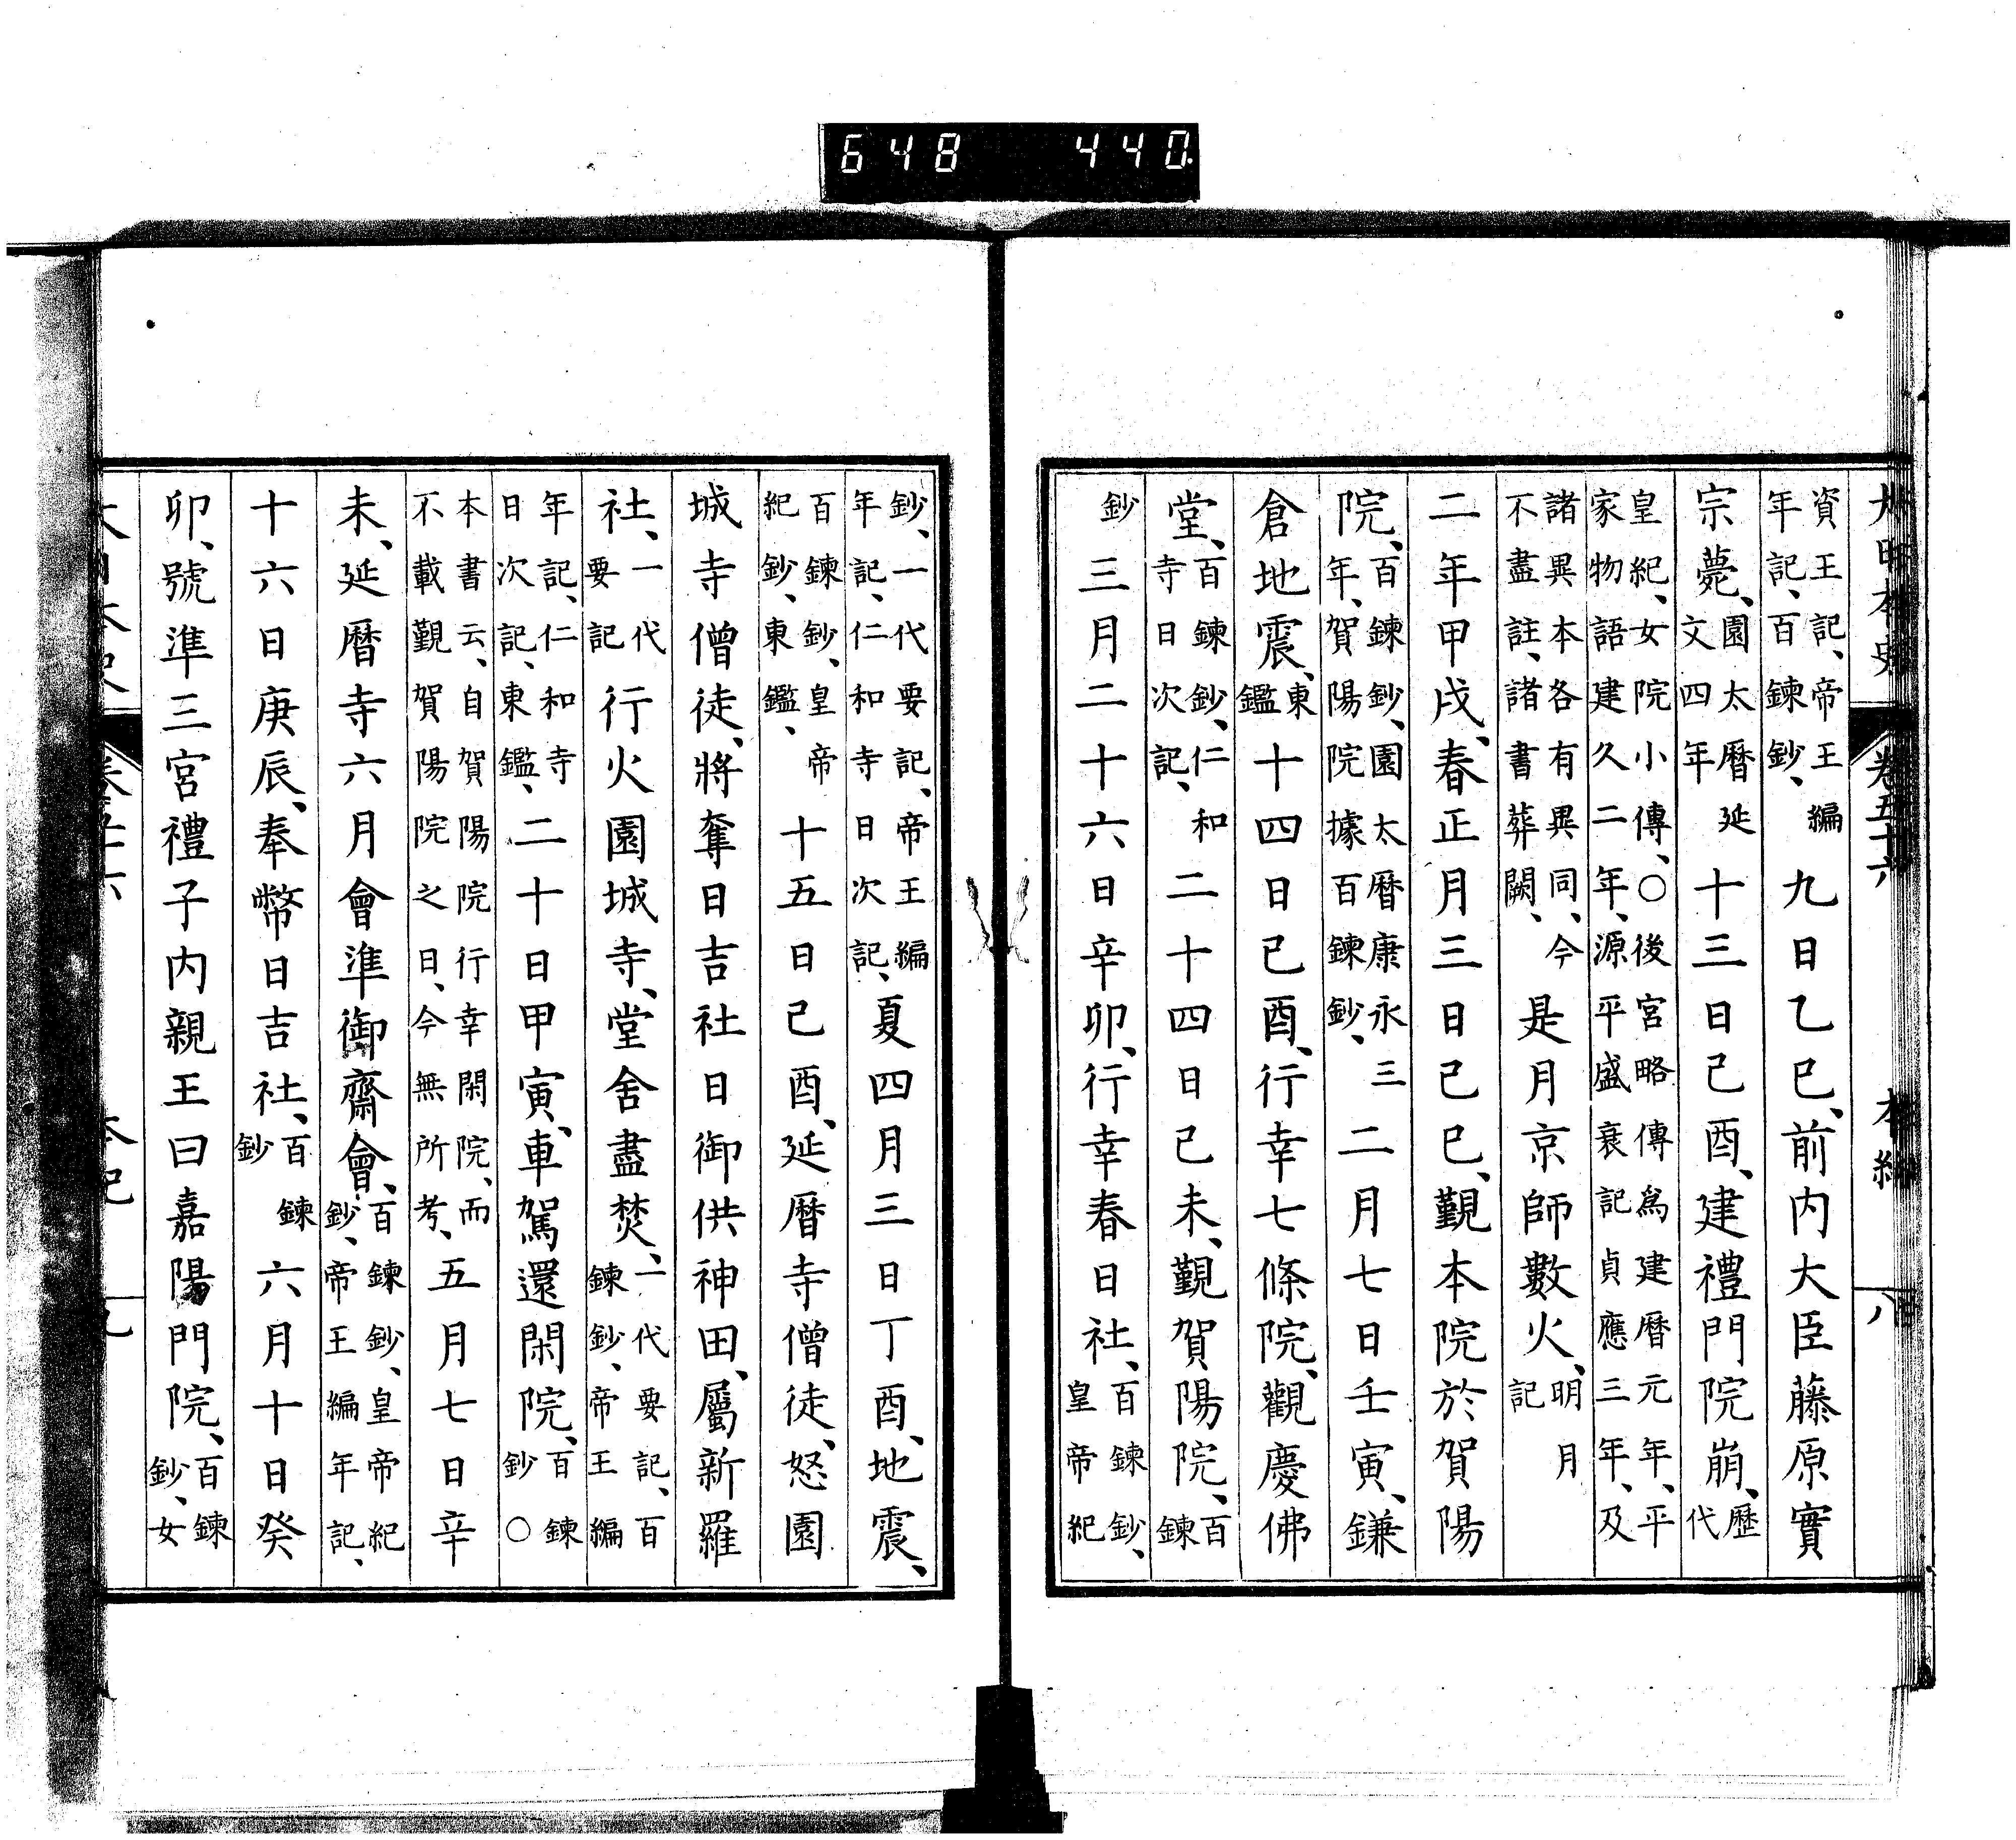 648 440
大日本史 卷五十六 本紀 八
資王記、帝王編年記、百鍊鈔、九日乙巳、前内大臣藤原實
宗薨、園太曆延文四年十三日己酉、建禮門院崩、歷代
皇紀、女院小傳、〇後宮略傳爲建曆元年、平家物語建久二年、源平盛衰記貞應三年、及
諸異本各有異同、今不盡註、諸書葬闕、是月京師數火、明月記
二年甲戌、春正月三日己巳、覲本院於賀陽
院、百鍊鈔、園太曆康永三年、賀陽院據百鍊鈔、二月七日壬寅、鎌
倉地震、東鑑十四日己酉、行幸七條院、觀慶佛
堂、百鍊鈔、仁和寺日次記、二十四日己未、覲賀陽院、百鍊
鈔三月二十六日辛卯、行幸春日社、百鍊鈔、皇帝紀
鈔、一代要記、帝王編年記、仁和寺日次記、夏四月三日丁酉、地震、
百鍊鈔、皇帝紀鈔、東鑑、十五日己酉、延曆寺僧徒、怒園
城寺僧徒、將奪日吉社日御供神田、屬新羅
社、一代要記行火園城寺、堂舍盡焚、一代要記、百鍊鈔、帝王編
年記、仁和寺日次記、東鑑、二十日甲寅、車駕還閑院、百鍊鈔〇
本書云、自賀陽院行幸閑院、而不載覲賀陽院之日、今無所考、五月七日辛
未、延曆寺六月會準御齋會、百鍊鈔、皇帝紀鈔、帝王編年記、
十六日庚辰、奉幣日吉社、百鍊鈔六月十日癸
卯、號準三宮禮子内親王曰嘉陽門院、百鍊鈔、女